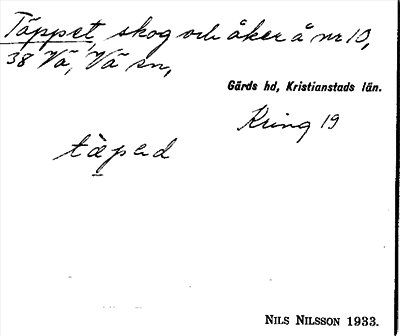 Täppet, skog och åker å nr 10,
38 Vä, Vä sn,
Gärds hd, Kristianstads län.
Kring 19
täpəd
NILS NILSSON 1933.